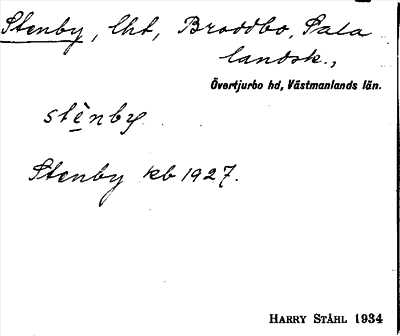 Stenby, lht, Broddbo, Sala
landsk.,
Övertjurbo hd, Västmanlands län.
stènby
Stenby kb 1927.
HARRY STÅHL 1934